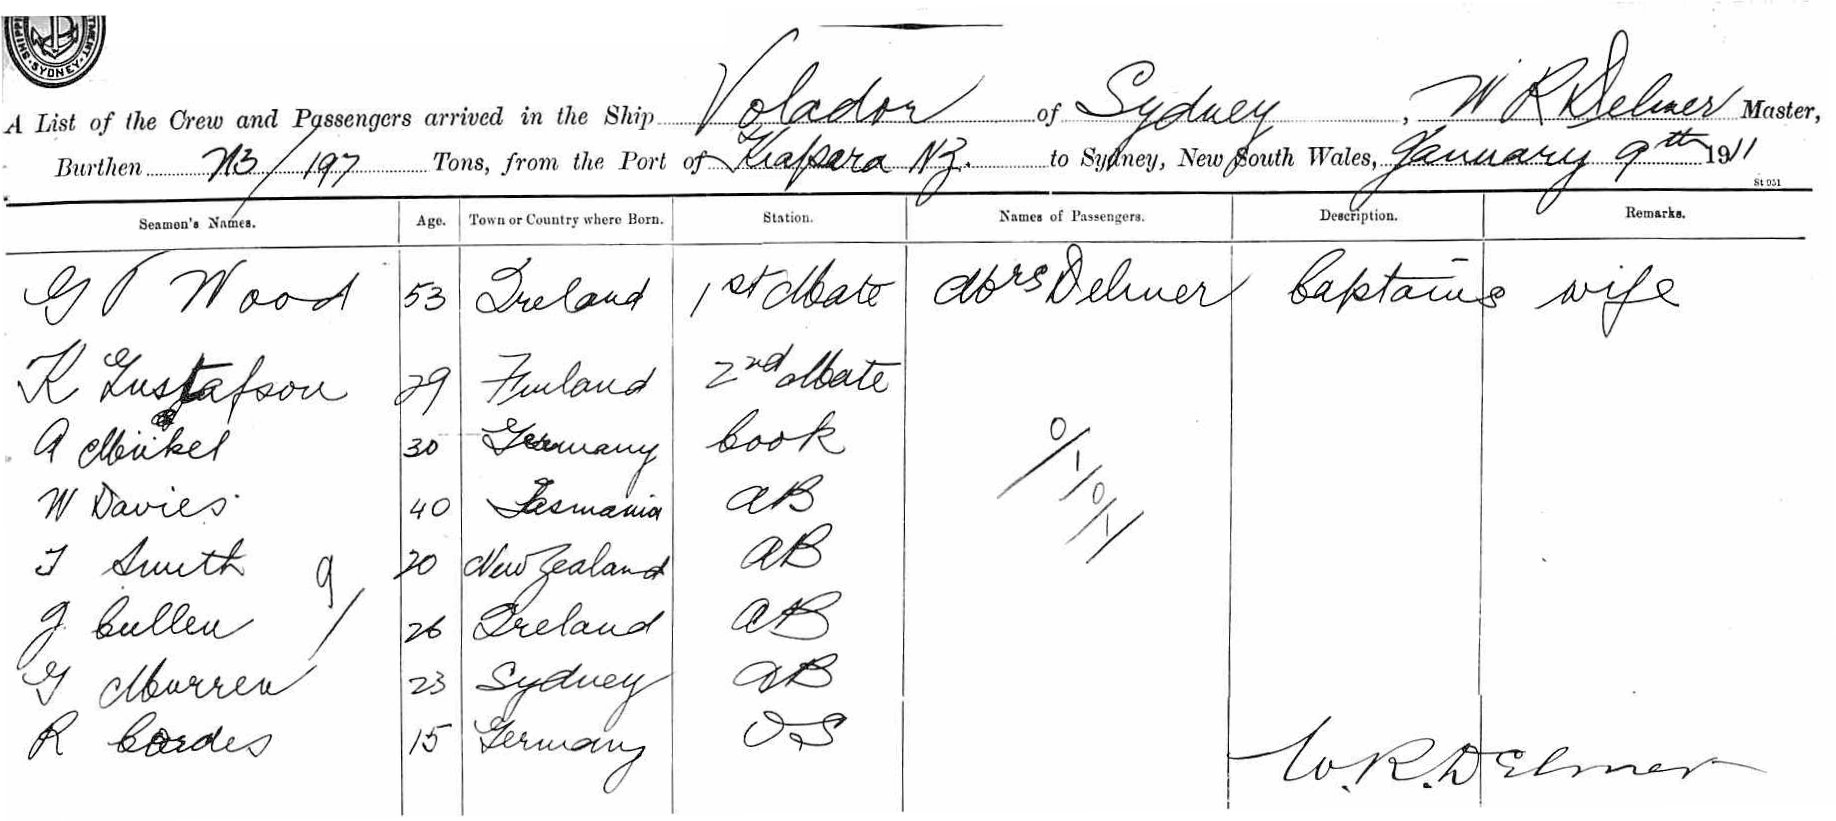 SHIPPI TMENT. SYDNEY.
A List of the Crew and Passengers arrived in the Ship Volador of Sydney, W R Delmer Master,
Burthen 713/197 Tons, from the Port of Kiapara NZ. to Sydney, New South Wales, January 9th 1911
St 951
Seamen's Names. Age. Town or Country where Born. Station. Names of Passengers. Description. Remarks.
G P Wood 53 Ireland 1st Mate Mrs Delmer Captains wife
K Gustafson 29 Finland 2nd Mate
A Minkel 30 Germany Cook
W Davies 40 Tasmania AB
T Smith 20 New Zealand AB
J Cullen 26 Ireland AB
G Murren 23 Sydney AB
R Cordes 15 Germany OS
9/
0/1/0/1/
W.R. Delmer